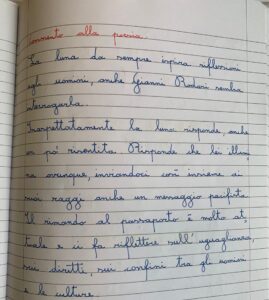 commento alla poesia
La luna da sempre ispira riflessioni
agli uomini, anche Gianni Rodari sembra
interrogarla.
Inaspettatamente la luna risponde, anche
un po' risentita. Risponde che lei illumi
na ovunque, inviandoci così insieme ai
suoi raggi anche un messaggio pacifista.
Il rimando al passaporto è molto at,
tuale e ci fa riflettere sull'uguaglianza,
sui diritti, sui confini tra gli uomini
e le culture.